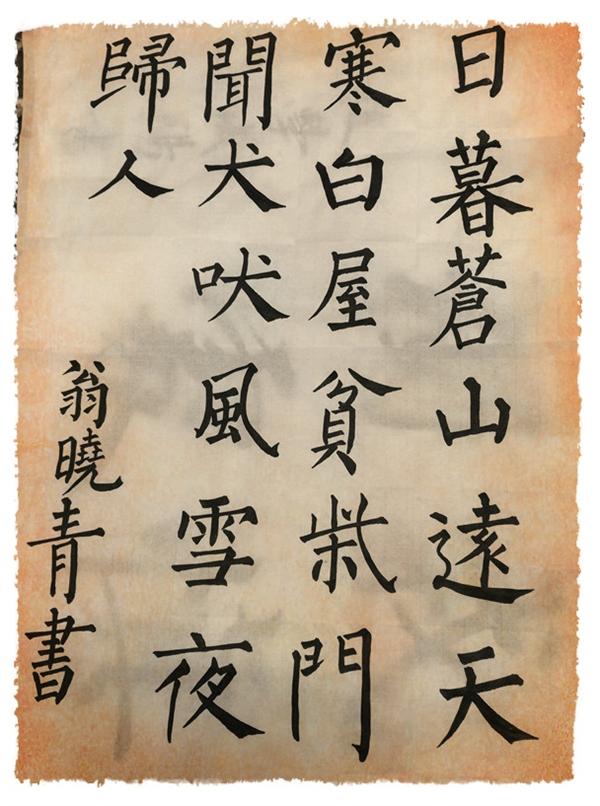 日暮蒼山遠天
寒白屋貧柴門
聞犬吠風雪夜
歸人
翁曉青書